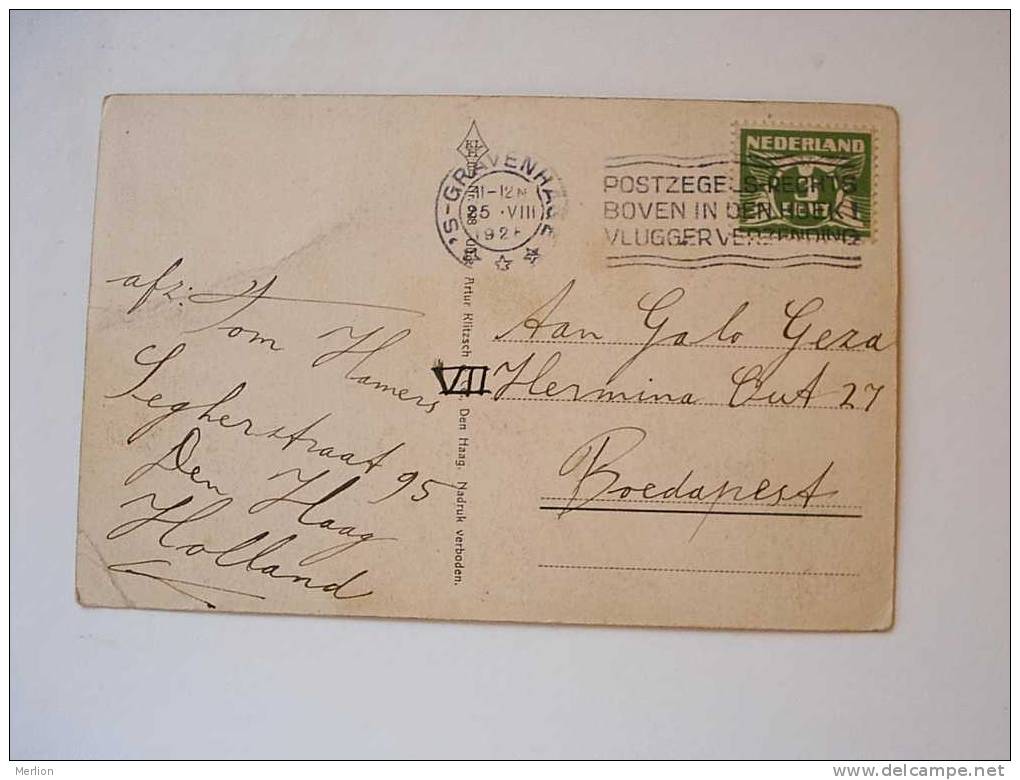 NEDERLAND
'S-GRAVENHAGE
11-12 N
25 . VIII
192
POSTZEGELS RECHTS
BOVEN IN DEN HOEK !
VLUGGER VERZENDING
Artur Klitzsch Den Haag. Nadruk verboden.
afz: Tom Hamers
Segherstraat 95
Den Haag
Holland
VII
Aan Galo Geza
Hermina Out 27
Boedapest
Merlion
delcampe.net